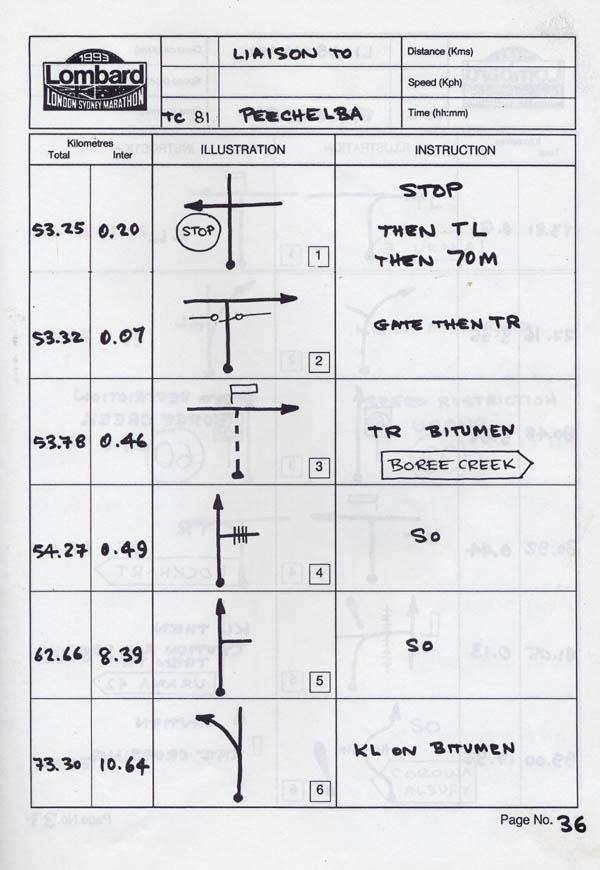 1993
Lombard
LONDON SYDNEY MARATHON
LIAISON TO
TC 81 PEECHELBA
Distance (Kms)
Speed (Kph)
Time (hh:mm)
Kilometres
Total Inter
ILLUSTRATION
INSTRUCTION
53.25 0.20
STOP
1
STOP
THEN TL
THEN 70M
53.32 0.07
2
GATE THEN TR
53.78 0.46
3
TR BITUMEN
BOREE CREEK
54.27 0.49
4
SO
62.66 8.39
5
SO
73.30 10.64
6
KL ON BITUMEN
Page No. 36